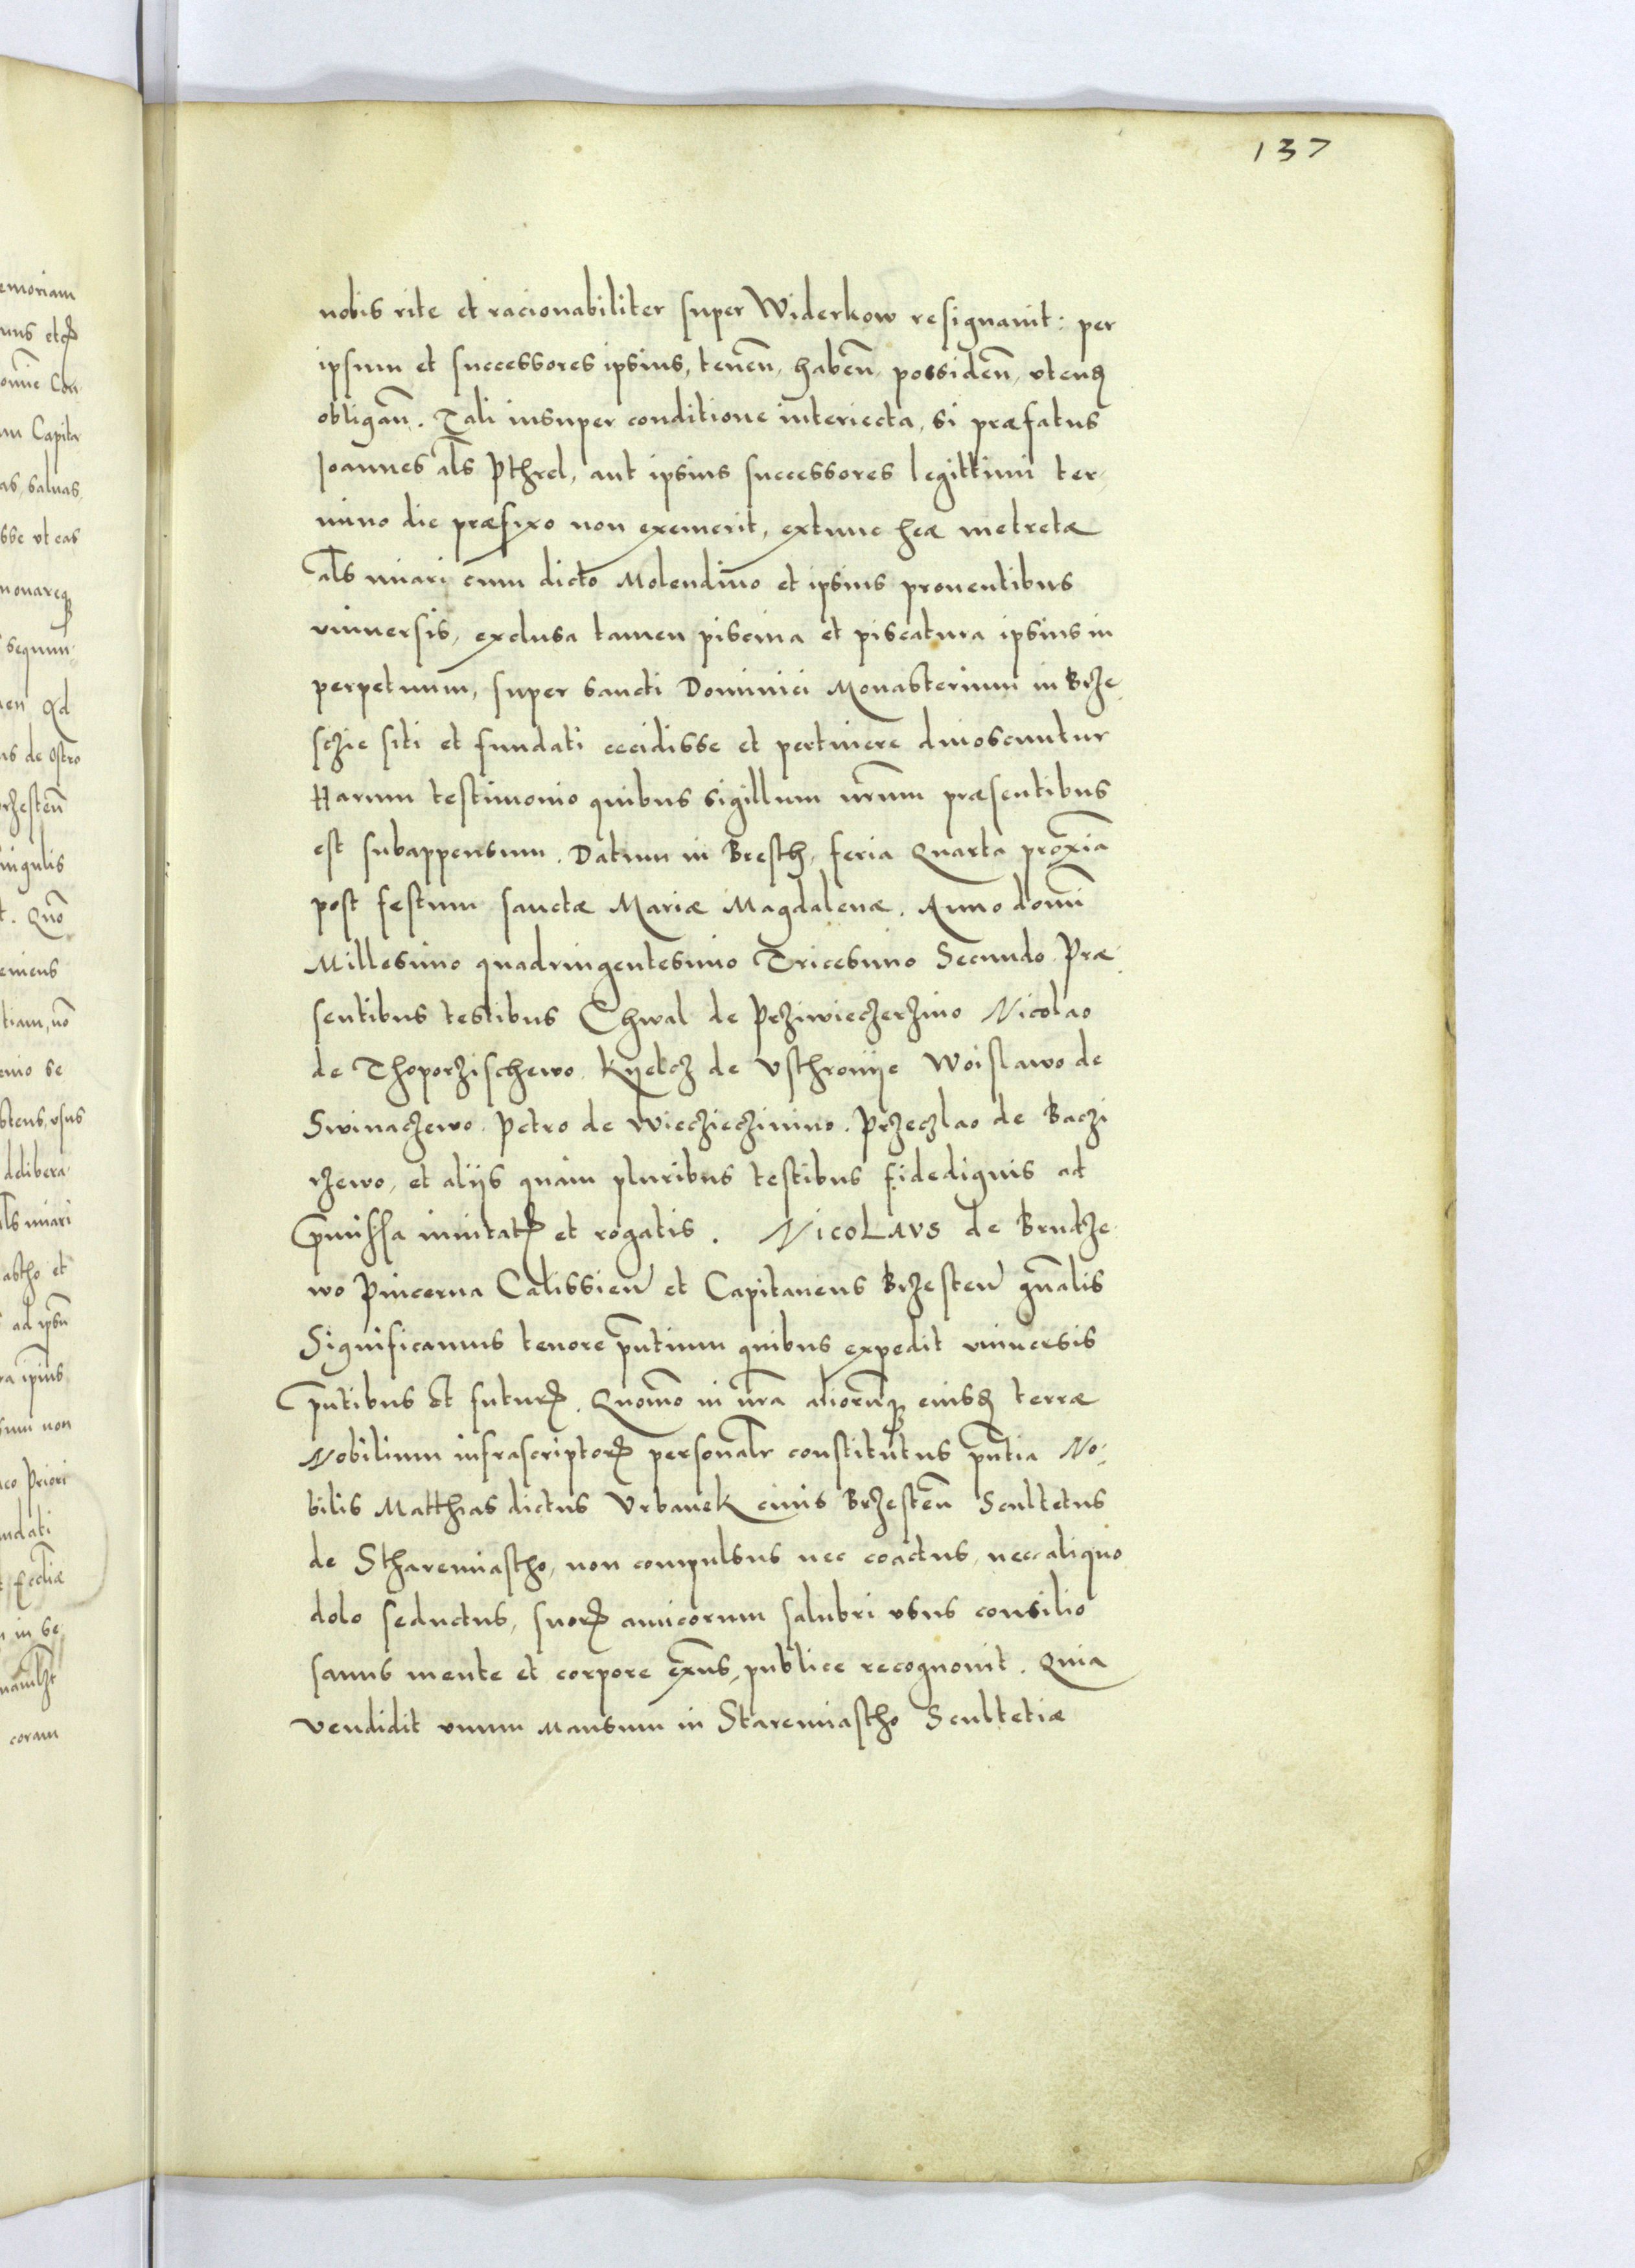 137
nobis rite et racionabiliter super Widerkow resignauit: per
ipsum et successores ipsius, tenen̄, haben̄, possiden̄, vtenꝫ
obligan̄. Tali insuper conditione interiecta, si præfatus
Joannes al̄s Pthrel, aut ipsius successores legittimi ter,
mino die præfixo non exemerit, extunc heæ metretæ
al̄s miari cum dicto Molendino et ipsius prouentibus
vniuersis, exclusa tamen piscina et piscatura ipsius in
perpetuum, super sancti Dominici Monasterium in Brze,
sczie siti et fundati cecidisse et pertinere dinoscuntur
Harum testimonio quibus sigillum nr̄um præsentibus
est subappensum. Datum in Bresth, feria Quarta prox̄ia
post festum sanctæ Mariæ Magdalenæ. Anno domī
Millesimo quadringentesimo Tricesimo Secundo. Præ,
sentibus testibus Chwal de Prziwieczerzino Nicolao
de Thoporzischewo. Kyelcz de Vsthronije Woislawo de
Swinaczewo. Petro de Wiecziezinino. Przeczlao de Baczi
rzewo, et alijs quàm pluribus testibus fidedignis ad
p̄missa inuitatꝝ et rogatis. NICOLAVS de Brudze,
wo Pincerna Calissien̄ et Capitaneus Brzesten̄ gn̄alis
Significamus tenore pn̄tium quibus expedit vniuersis
pn̄tibus et futurꝝ. Quomō in nr̄a aliorumqꝫ eiusꝫ terræ
Nobilium infrascriptorꝝ personalr̄ constitutus pn̄tia No,
bilis Matthias dictus Vrbanek ciuis Brzesten̄ Scultetus
de Stharemiastho, non compulsus nec coactus, nec aliquo
dolo seductus, suorꝝ amicorum salubri vsus consilio
sanus mente et corpore ex̄ns, publice recognouit. Quia
vendidit vnum Mansum in Staremiastho Scultetiæ